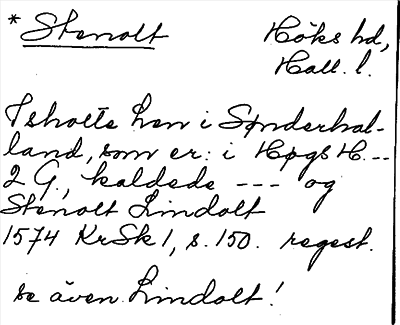 * Stenolt Höks hd,
Hall. l.
Tsholte Len i Sønderhal-
land, som er: i Høgs H.--
2 G., kaldede --- og
Stenolt Lindolt
1574 KrSk 1, s. 150. regest.
se även Lindolt!